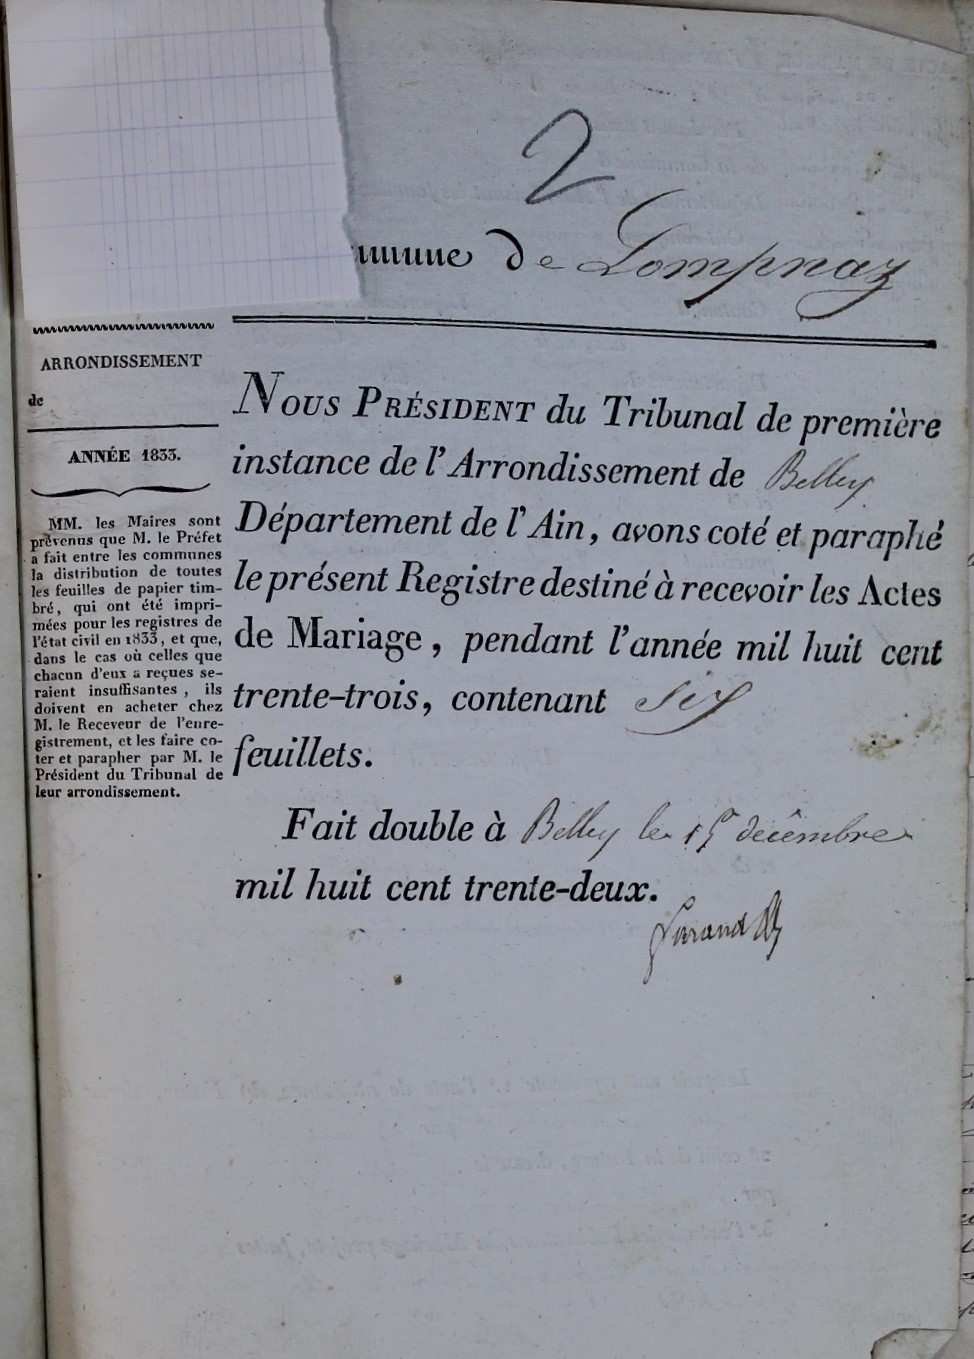 2
mmune de Lompnaz
ARRONDISSEMENT
de
ANNÉE 1833.
MM. les Maires sont
prévenus que M. le Préfet
a fait entre les communes
la distribution de toutes
les feuilles de papier tim-
bré, qui ont été impri-
mées pour les registres de
l'état civil en 1833, et que,
dans le cas où celles que
chacun d'eux a reçues se-
raient insuffisantes, ils
doivent en acheter chez
M. le Receveur de l'enre-
gistrement, et les faire co-
ter et parapher par M. le
Président du Tribunal de
leur arrondissement.
NOUS PRÉSIDENT du Tribunal de première
instance de l'Arrondissement de Belley
Département de l'Ain, avons coté et paraphé
le présent Registre destiné à recevoir les Actes
de Mariage, pendant l'année mil huit cent
trente-trois, contenant six
feuillets.
Fait double à Belley le 15 décembre
mil huit cent trente-deux.